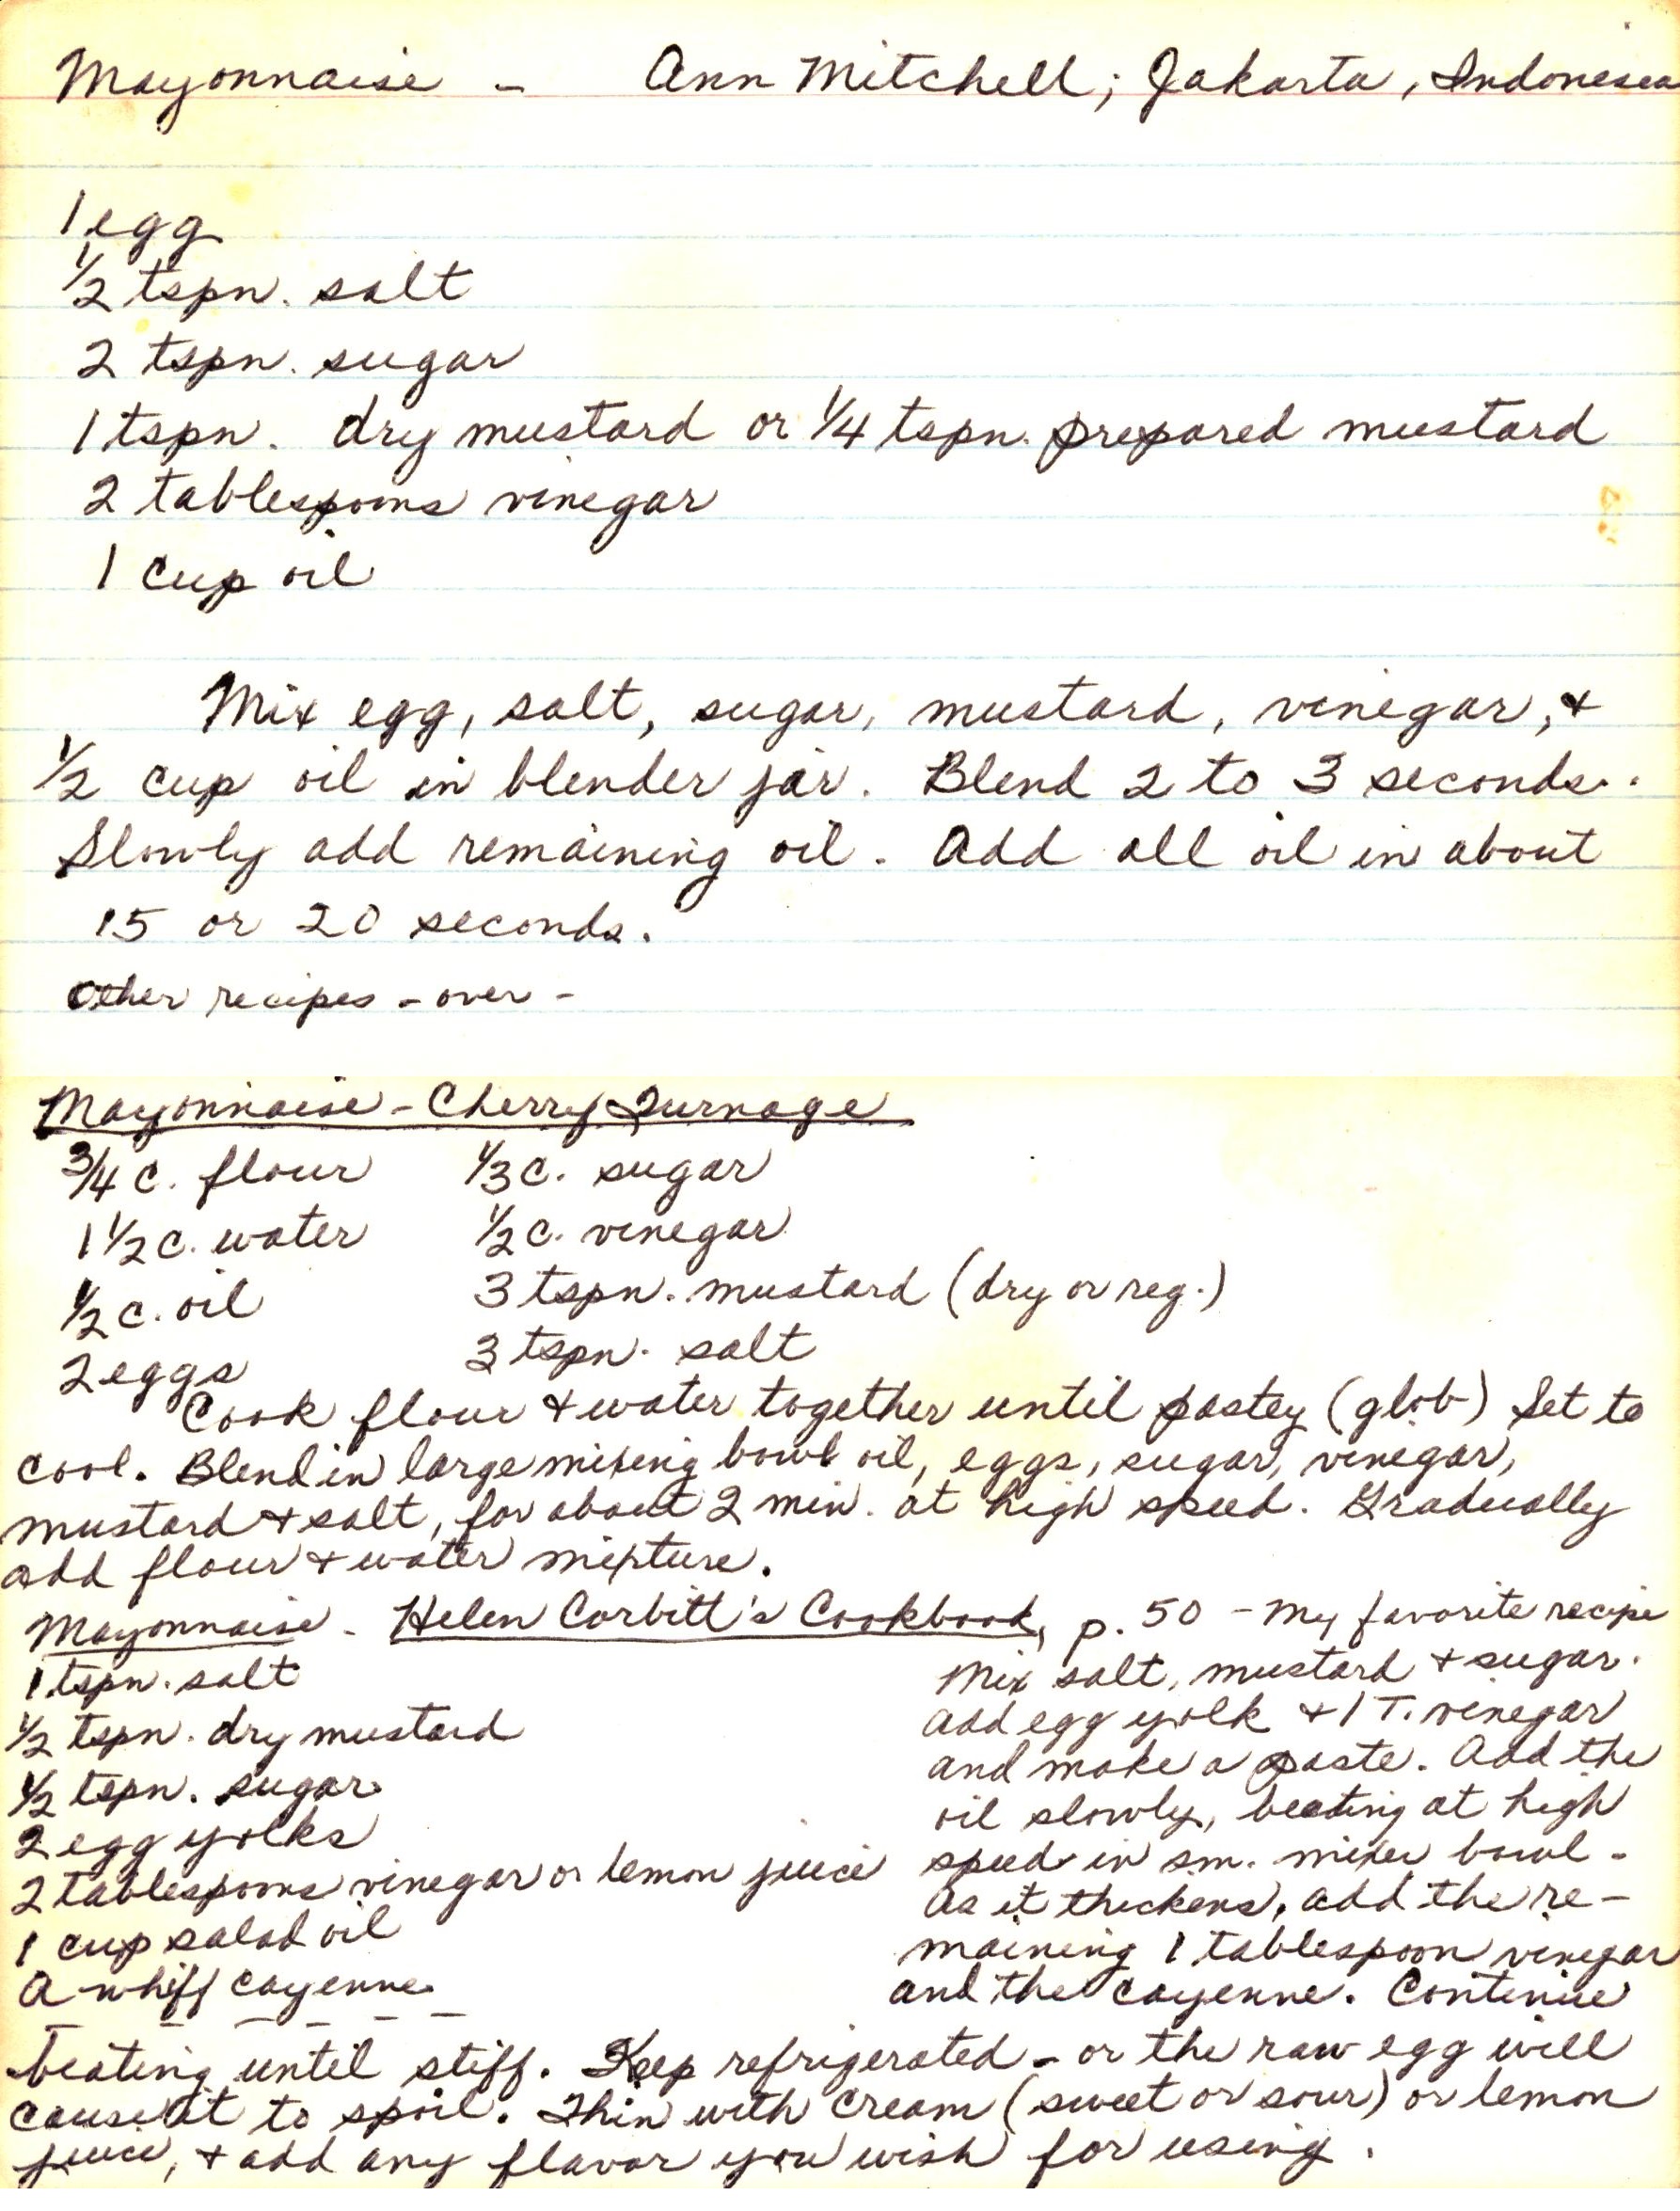 Mayonnaise - Ann Mitchell; Jakarta, Indonesia
1 egg
1/2 tspn. salt
2 tspn. sugar
1 tspn. dry mustard or 1/4 tspn. prepared mustard
2 tablespoons vinegar
1 cup oil
Mix egg, salt, sugar, mustard, vinegar, &
1/2 cup oil in blender jar. Blend 2 to 3 seconds.
Slowly add remaining oil. Add all oil in about
15 or 20 seconds.
Other recipes - over -
Mayonnaise - Cherry Turnage
3/4 c. flour
1 1/2 c. water
1/2 c. oil
2 eggs
1/3 c. sugar
1/2 c. vinegar
3 tspn. mustard (dry or reg.)
3 tspn. salt
Cook flour & water together until pastey (glob) Set to
cool. Blend in large mixing bowl oil, eggs, sugar, vinegar,
mustard & salt, for about 2 min. at high speed. Gradually
add flour & water mixture.
Mayonnaise - Helen Corbitt's Cookbook, p. 50 - My favorite recipe
1 tspn. salt
1/2 tspn. dry mustard
1/2 tspn. sugar
2 egg yolks
2 tablespoons vinegar or lemon juice
1 cup salad oil
A whiff cayenne
Mix salt, mustard & sugar.
Add egg yolk & 1 T. vinegar
and make a paste. Add the
oil slowly, beating at high
speed in sm. mixer bowl.
As it thickens, add the re-
maining 1 tablespoon vinegar
and the cayenne. Continue
beating until stiff. Keep refrigerated - or the raw egg will
cause it to spoil. Thin with cream (sweet or sour) or lemon
juice, & add any flavor you wish for using.